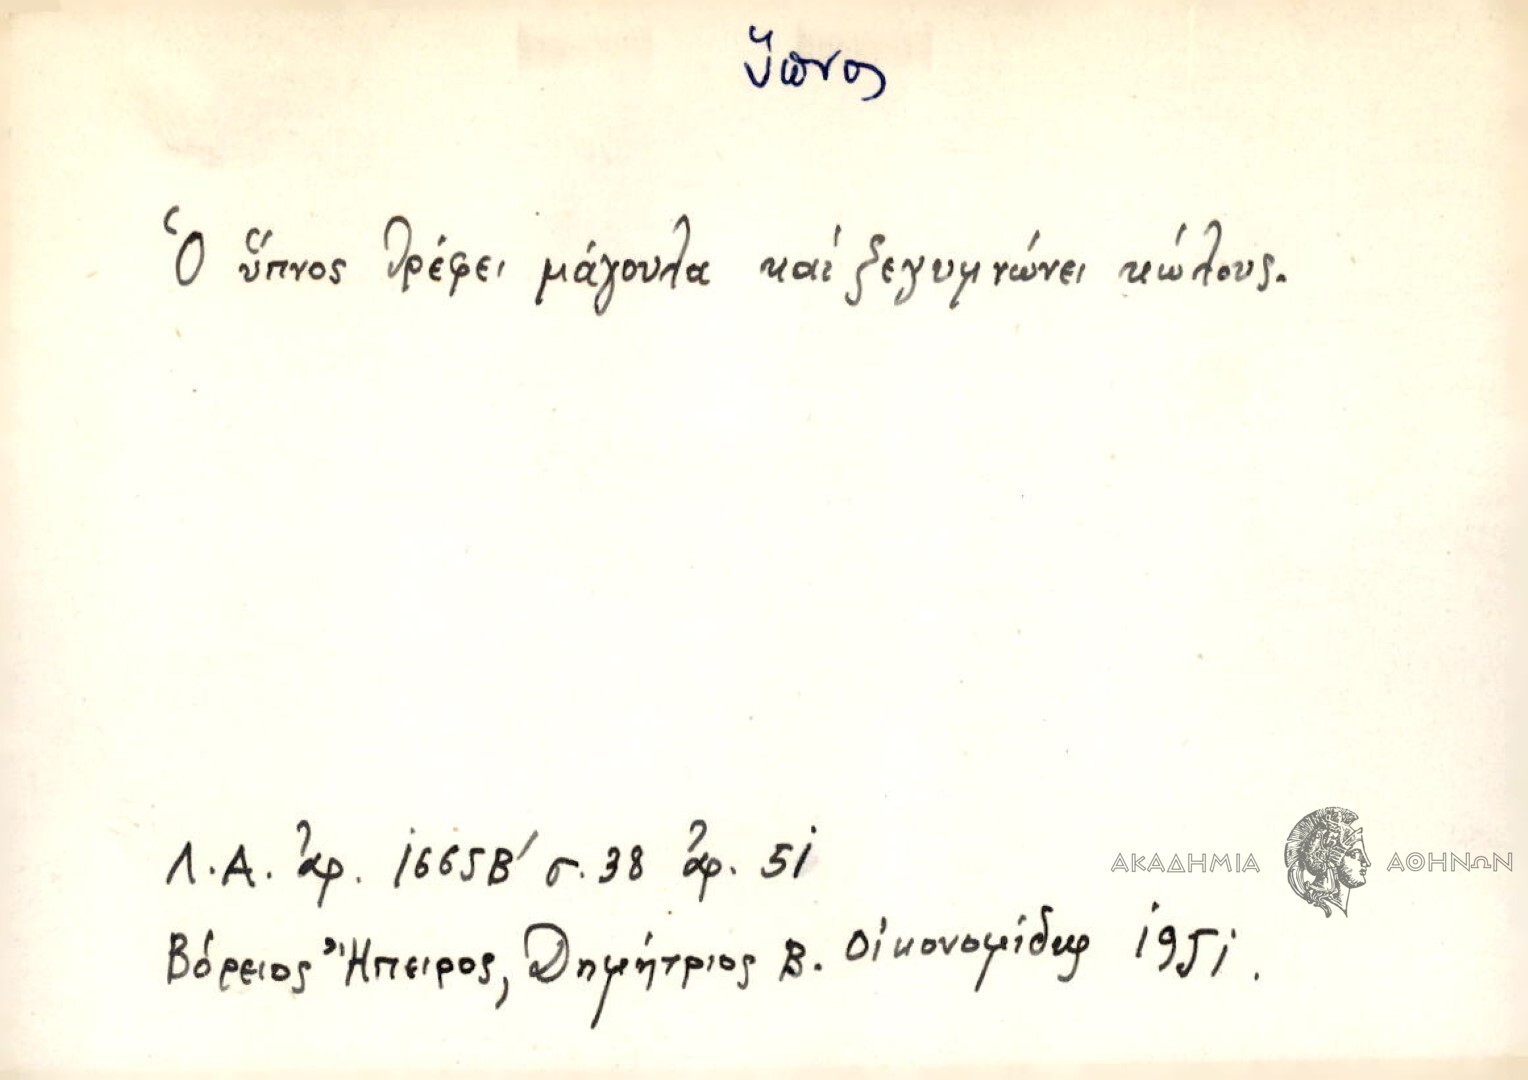 ὕπνος
Ὁ ὕπνος θρέφει μάγουλα καί ξεγυμνώνει κώλους.
Λ.Α. ἀρ. 1665Β΄ σ. 38 ἀρ. 51
ΑΚΑΔΗΜΙΑ ΑΘΗΝΩΝ
Βόρειος Ἤπειρος, Δημήτριος Β. Οἰκονομίδης 1951.